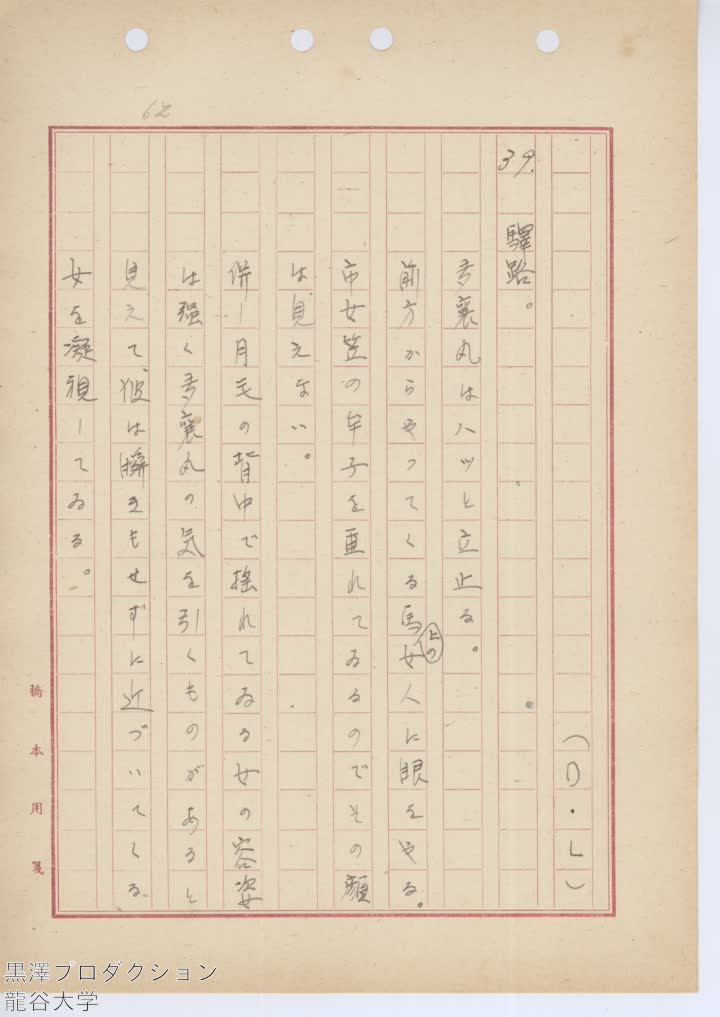 62
（D・L）
39. 驛路。
多襄丸はハッと立止る。
前方からやってくる馬上の女人に眼をやる。
市女笠の牟子を垂れてゐるのでその顔
は見えない。
併し月毛の背中で揺れてゐる女の容姿
は強く多襄丸の気を引くものがあると
見えて彼は瞬きもせずに近づいてくる
女を凝視してゐる。
橋本用箋
黒澤プロダクション
龍谷大学